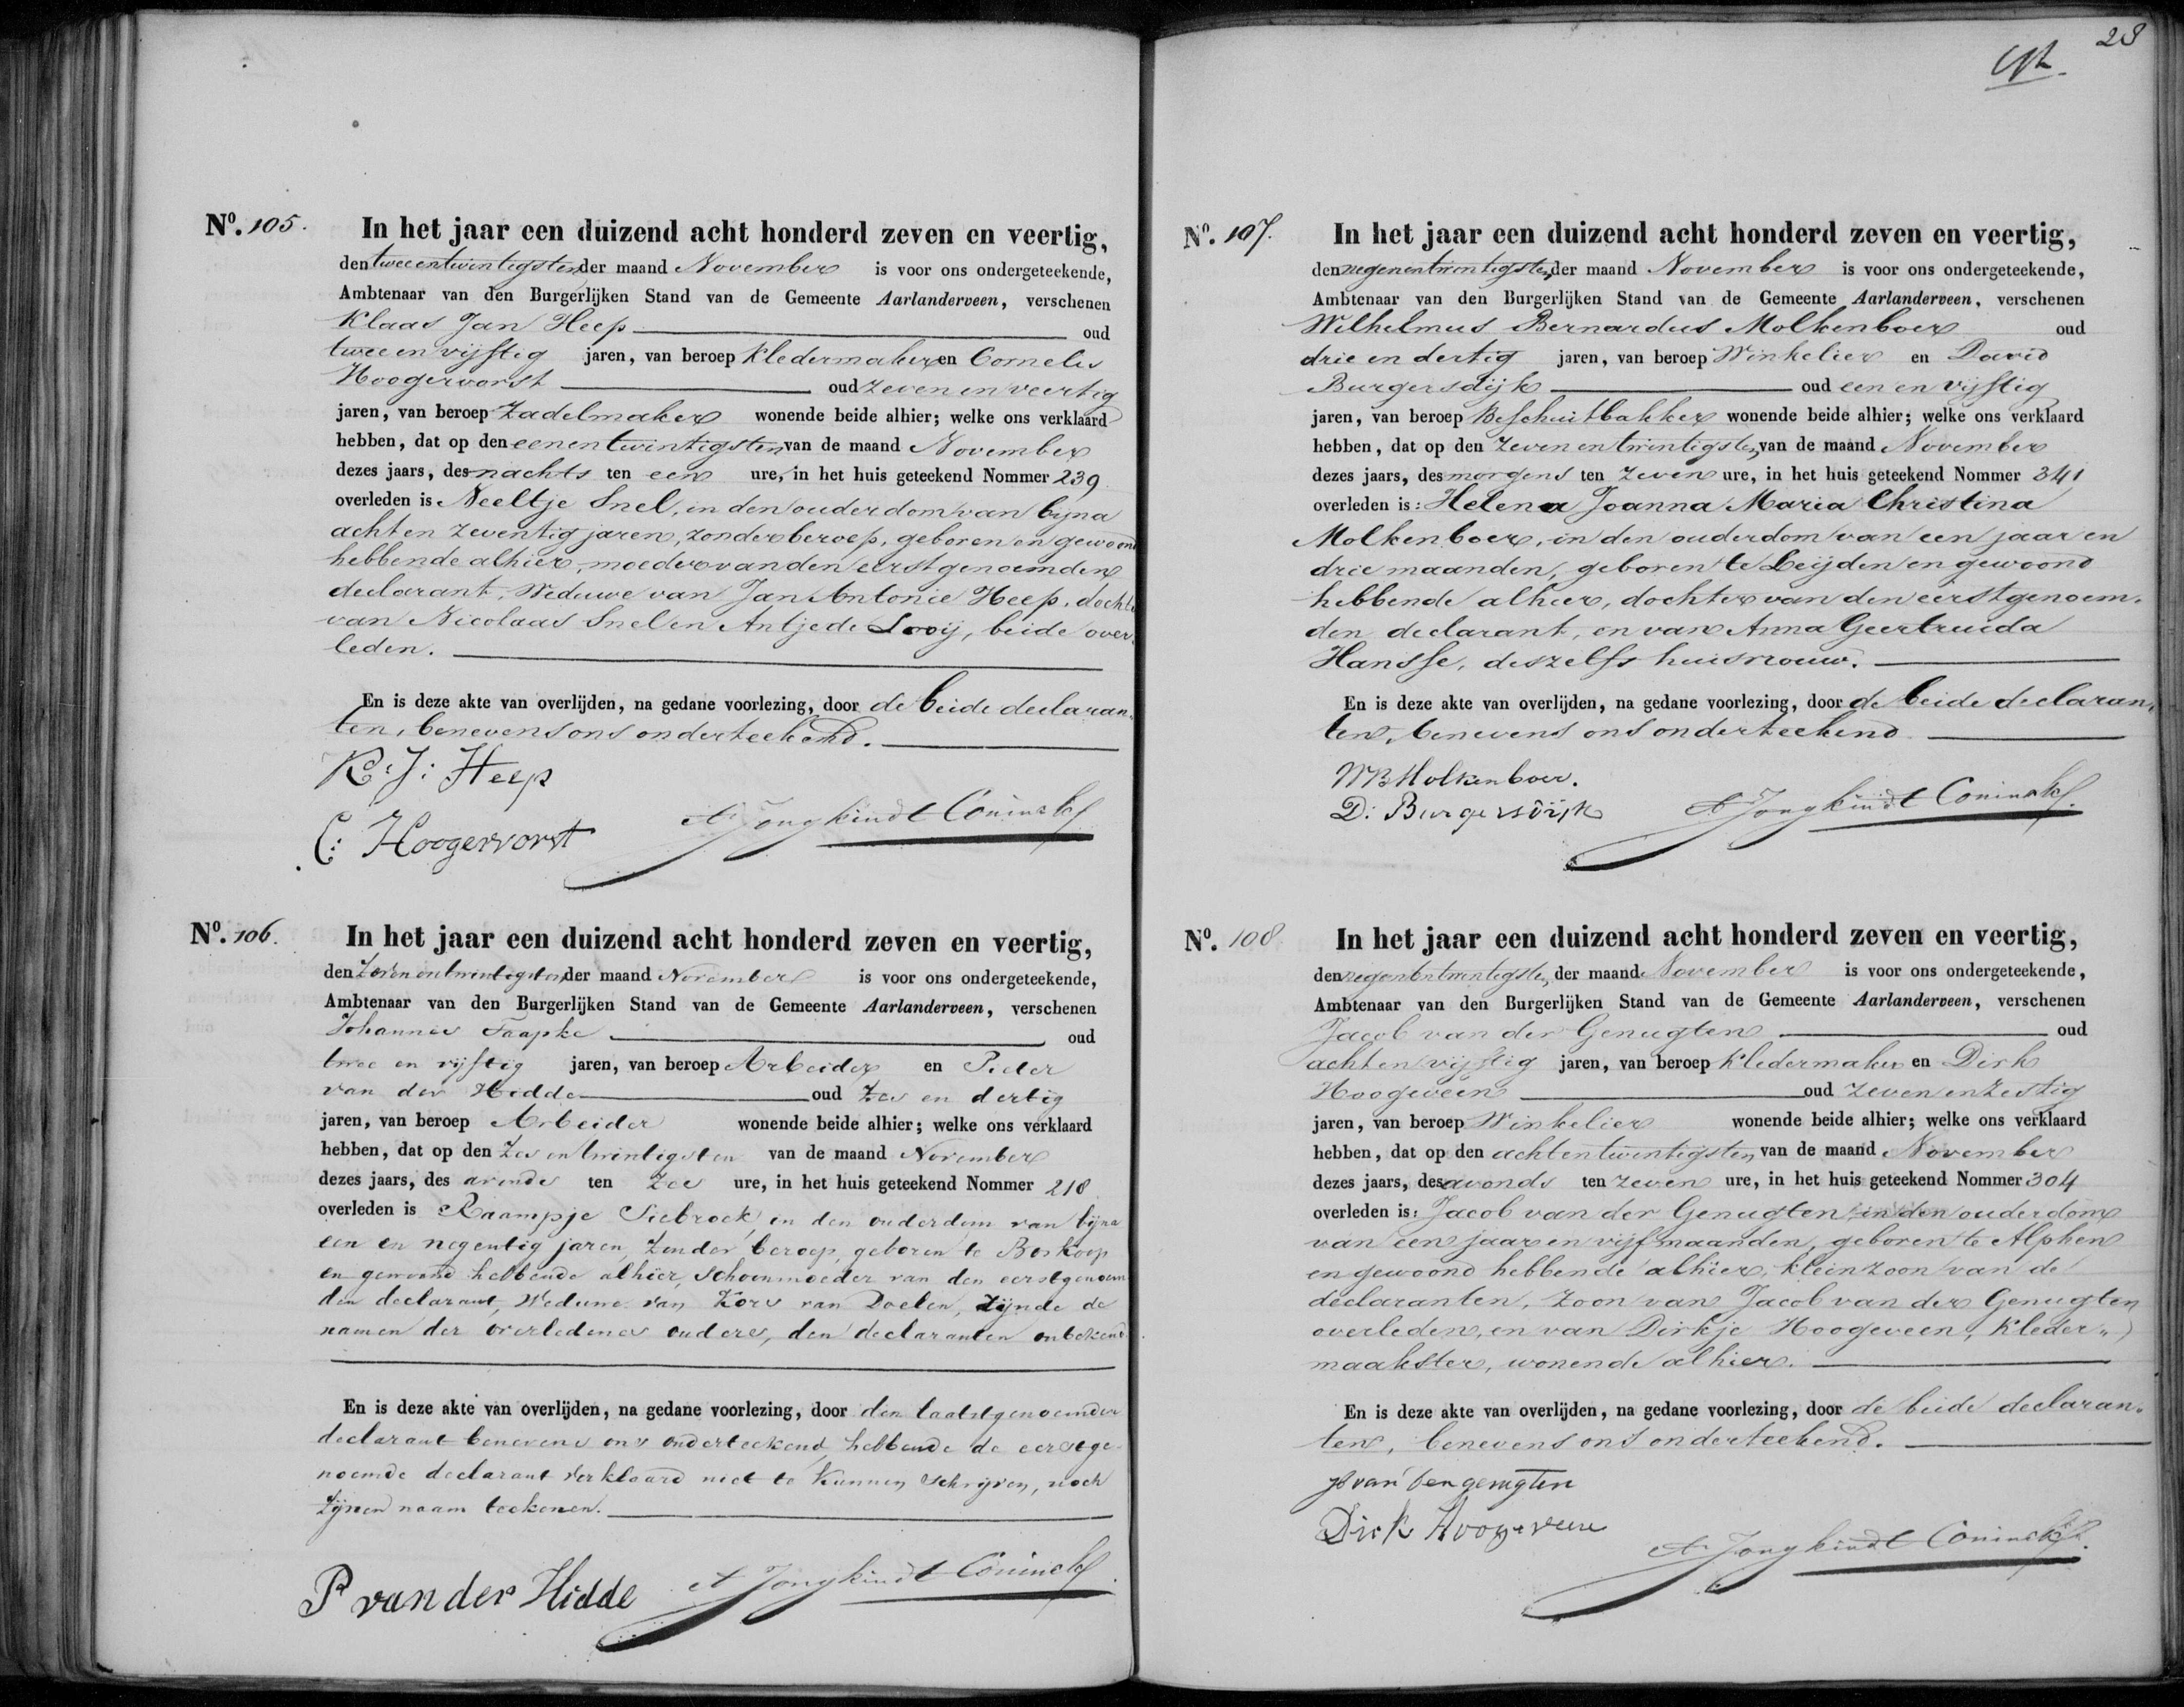 Nº. 105.
In het jaar een duizend acht honderd zeven en veertig,
den twee en twintigsten der maand November is voor ons ondergeteekende,
Ambtenaar van den Burgerlijken Stand van de Gemeente Aarlanderveen, verschenen
Klaas Jan Heep oud
twee en vijftig jaren, van beroep Kledermaker en Cornelis
Hoogervorst oud zeven en veertig
jaren, van beroep Zadelmaker wonende beide alhier; welke ons verklaard
hebben, dat op den een en twintigsten van de maand November
dezes jaars, des nachts ten een ure, in het huis geteekend Nommer 239
overleden is Neeltje Snel, in den ouderdom van bijna
acht en zeventig jaren, zonder beroep, geboren en gewoond
hebbende alhier, moeder van den eerstgenoemden
declarant, Weduwe van Jan Antonie Heep, dochter
van Nicolaas Snel en Antje de Looij, beide over-
leden.
En is deze akte van overlijden, na gedane voorlezing, door de beide declaran-
ten, benevens ons onderteekend.
K: J: Heep
C: Hoogervorst
A Jongkindt Coninck
Nº. 106.
In het jaar een duizend acht honderd zeven en veertig,
den zeven en twintigsten der maand November is voor ons ondergeteekende,
Ambtenaar van den Burgerlijken Stand van de Gemeente Aarlanderveen, verschenen
Johannes Faapke oud
twee en vijftig jaren, van beroep Arbeider en Pieter
van der Hidde oud zes en dertig
jaren, van beroep Arbeider wonende beide alhier; welke ons verklaard
hebben, dat op den zes en twintigsten van de maand November
dezes jaars, des avonds ten zes ure, in het huis geteekend Nommer 218
overleden is Raampje Siebroek, in den ouderdom van bijna
een en negentig jaren, zonder beroep, geboren te Boskoop
en gewoond hebbende alhier, schoonmoeder van den eerstgenoem
den declarant, Weduwe van Kors van Doelen, zijnde de
namen der overledenes ouders, den declaranten onbekend
En is deze akte van overlijden, na gedane voorlezing, door den laatstgenoemden
declarant benevens ons onderteekend, hebbende de eerstge-
noemde declarant verklaard niet te kunnen schrijven, noch
zijnen naam teekenen.
P van der Hidde
A Jongkindt Coninck
28
Nº. 107.
In het jaar een duizend acht honderd zeven en veertig,
den negen en twintigsten der maand November is voor ons ondergeteekende,
Ambtenaar van den Burgerlijken Stand van de Gemeente Aarlanderveen, verschenen
Wilhelmus Bernardus Molkenboer oud
drie en dertig jaren, van beroep Winkelier en David
Burgersdijk oud een en vijftig
jaren, van beroep Beschuitbakker wonende beide alhier; welke ons verklaard
hebben, dat op den zeven en twintigsten van de maand November
dezes jaars, des morgens ten zeven ure, in het huis geteekend Nommer 341
overleden is: Helena Joanna Maria Christina
Molkenboer, in den ouderdom van een jaar en
drie maanden, geboren te Leijden en gewoond
hebbende alhier, dochter van den eerstgenoem-
den declarant, en van Anna Geertruida
Hansse, deszelfs huisvrouw.
En is deze akte van overlijden, na gedane voorlezing, door de beide declaran-
ten, benevens ons onderteekend
WB Molkenboer.
D: Burgersdijk
A Jongkindt Coninck
Nº. 108
In het jaar een duizend acht honderd zeven en veertig,
den negen en twintigsten der maand November is voor ons ondergeteekende,
Ambtenaar van den Burgerlijken Stand van de Gemeente Aarlanderveen, verschenen
Jacob van der Genugten oud
acht en vijftig jaren, van beroep Kledermaker en Dirk
Hoogeveen oud zeven en zestig
jaren, van beroep Winkelier wonende beide alhier; welke ons verklaard
hebben, dat op den acht en twintigsten van de maand November
dezes jaars, des avonds ten zeven ure, in het huis geteekend Nommer 304
overleden is: Jacob van der Genugten, in den ouderdom
van een jaar en vijf maanden, geboren te Alphen
en gewoond hebbende alhier, kleinzoon van de
declaranten, zoon van Jacob van der Genugten
overleden, en van Dirkje Hoogeveen, Kleder-
maakster, wonende alhier.
En is deze akte van overlijden, na gedane voorlezing, door de beide declaran-
ten, benevens ons onderteekend.
van den genugten
Dirk Hoogeveen
A Jongkindt Coninck